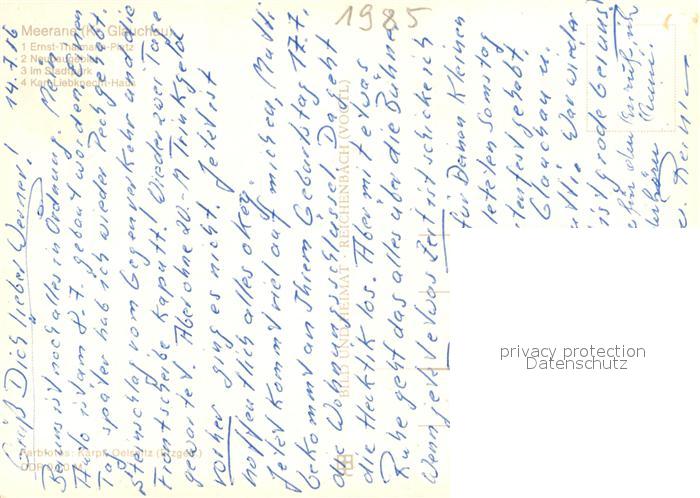 Meerane (Kr. Glauchau)
1 Ernst-Thälmann-Platz
2 Neubaugebiet
3 Im Stadtpark
4 Karl-Liebknecht-Haus
1985
14.7.86
Grüß Dich lieber Werner!
Bei uns ist noch alles in Ordnung. Mein
Auto ist am 8.7. gebaut worden. Einen
Tag später hab ich wieder Pech gehabt.
Steinschlag vom Gegenverkehr und die
Frontscheibe kaputt! Wieder zwei Tage
gewartet. Aber ohne 20.-M Trinkgeld
vorher ging es nicht. Jetzt ist
hoffentlich alles okey.
Jetzt kommt viel auf mich zu, Mutti
bekommt an Ihrem Geburtstag 17.7.
die Wohnungsschlüssel. Da geht
die Hecktik los. Aber mit etwas
Ruhe geht das alles über die Bühne.
Wenn jetzt etwas Zeit ist schicke ich
für Deinen Kleinen
letzten Samstag
gehabt.
Glauchau u.
War wieder
ist grade bei uns!
für den
BILD UND HEIMAT · REICHENBACH (VOGTL)
Farbfotos: Karpf, Oelsnitz (Erzgeb.)
privacy protection
Datenschutz